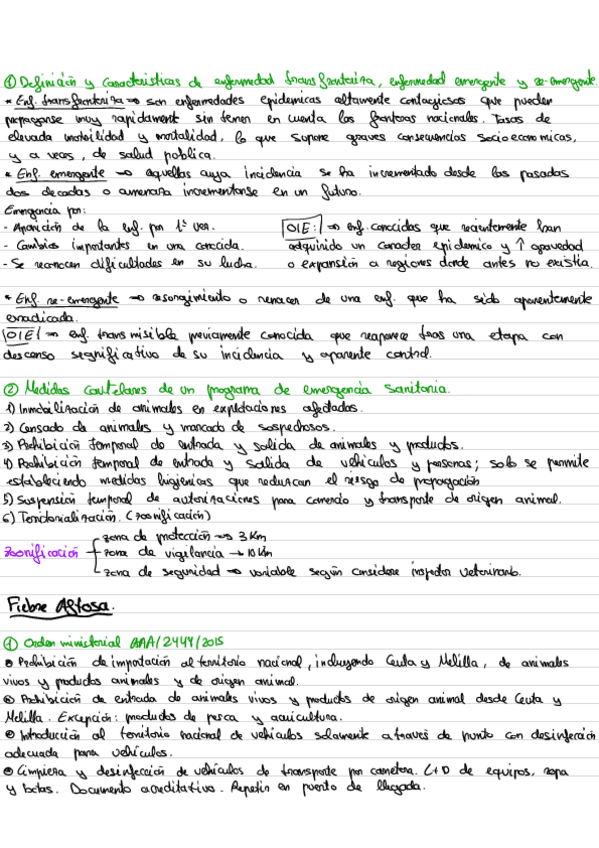 ① Definición y características de enfermedad transfronteriza, enfermedad emergente y re-emergente.
* Enf. transfronteriza → son enfermedades epidémicas altamente contagiosas que pueden
propagarse muy rapidamente sin tener en cuenta las fronteras nacionales. Tasas de
elevada morbilidad y mortalidad, lo que supone graves consecuencias socioeconomicas,
y a veces, de salud pública.
* Enf. emergente → aquellas cuya incidencia se ha incrementado desde las pasadas
dos decadas o amenaza incrementarse en un futuro.
Emergencia por:
- Aparición de la enf. por 1ª vez.
- Cambios importantes en una conocida.
- Se reconocen dificultades en su lucha.
OIE: → enf. conocidas que recientemente han
adquirido un caracter epidemico y ↑ gravedad
o expansión a regiones donde antes no existía.
* Enf. re-emergente → resurgimiento o renacer de una enf. que ha sido aparentemente
erradicada.
OIE → enf. transmisible previamente conocida que reaparece tras una etapa con
descenso significativo de su incidencia y aparente control.
② Medidas cautelares de un programa de emergencia sanitaria.
1) Inmobilización de animales en explotaciones afectadas.
2) Censado de animales y marcado de sospechosos.
3) Prohibición temporal de entrada y salida de animales y productos.
4) Prohibición temporal de entrada y salida de vehículos y personas; solo se permite
estableciendo medidas higiénicas que reduzcan el riesgo de propagación
5) Suspensión temporal de autorizaciones para comercio y transporte de origen animal.
6) Territorialización. (zoonificación)
zoonificación
zona de protección → 3 Km
zona de vigilancia → 10 Km
zona de seguridad → variable según considere inspector veterinario.
Fiebre Aftosa.
① Orden ministerial AAA/2444/2015
• Prohibición de importación al territorio nacional, incluyendo Ceuta y Melilla, de animales
vivos y productos animales y de origen animal.
• Prohibición de entrada de animales vivos y productos de origen animal desde Ceuta y
Melilla. Excepción: productos de pesca y acuicultura.
• Introducción al territorio nacional de vehículos solamente a través de punto con desinfección
adecuada para vehículos.
• Limpieza y desinfección de vehículos de transporte por carretera. L+D de equipos, ropa
y botas. Documento acreditativo. Repetir en puerto de llegada.